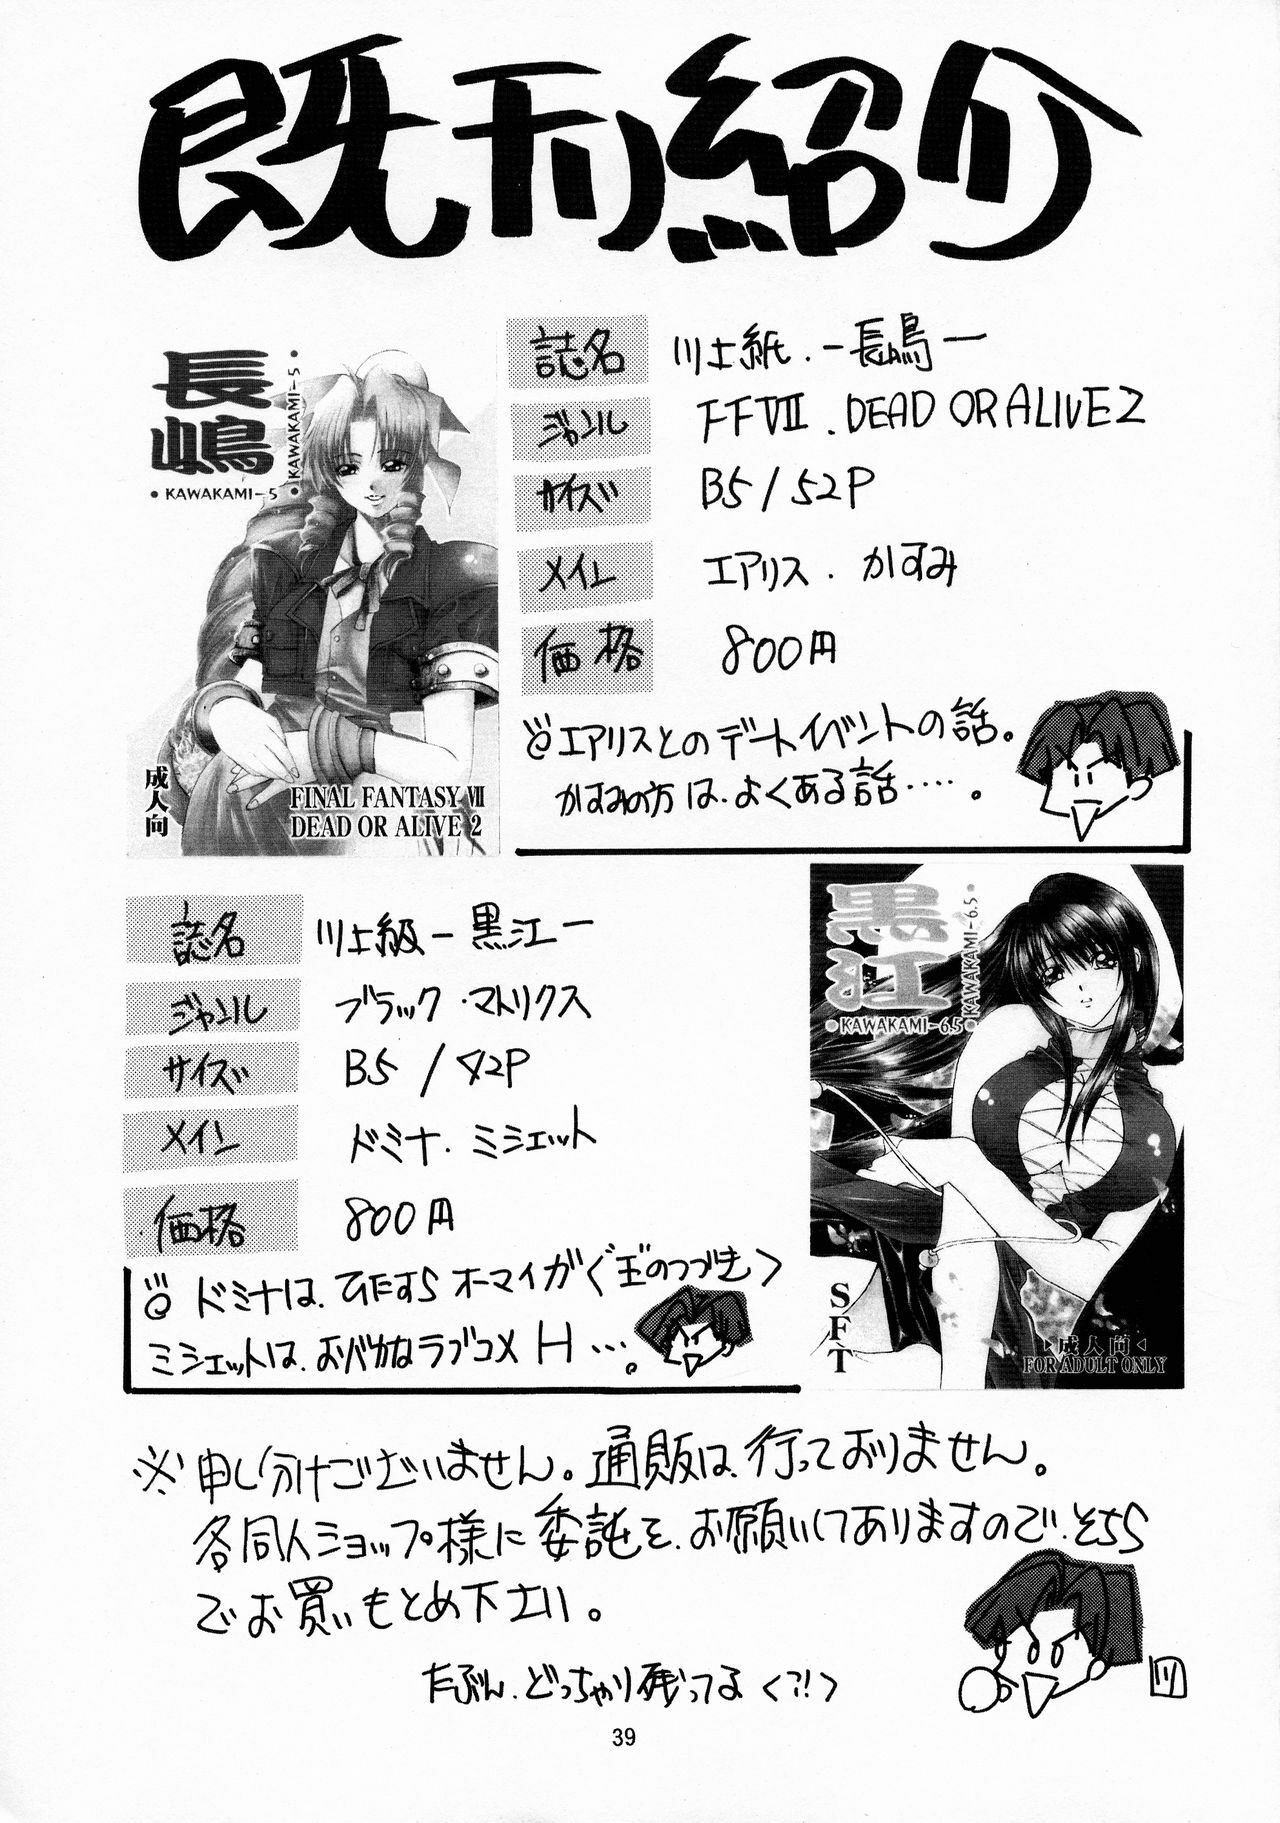 既刊紹介
長嶋
・KAWAKAMI-5
・KAWAKAMI-5・
成人向
FINAL FANTASY Ⅶ
DEAD OR ALIVE 2
誌名 川上紙.ー長嶋ー
ジャンル FFⅦ.DEAD OR ALIVE2
サイズ B5/52P
メイン エアリス.かすみ
価格 800円
エアリスとのデートイベントの話。
かすみの方は、よくある話‥‥。
誌名 川上級ー黒江ー
ジャンル ブラック・マトリクス
サイズ B5/42P
メイン ドミナ.ミシェット
価格 800円
ドミナは、ひたすらオーマイがぐ王のつづき>
ミシェットは、おバカなラブコメH…。
黒江
・KAWAKAMI-6.5
・KAWAKAMI-6.5・
SFT
▷成人向◁
FOR ADULT ONLY
※申し分けございません。通販は、行っておりません。
各同人ショップ様に委託を、お願いしてありますので、そちら
でお買いもとめ下さい。
たぶん、どっちゃり残ってるく?!>
川
39